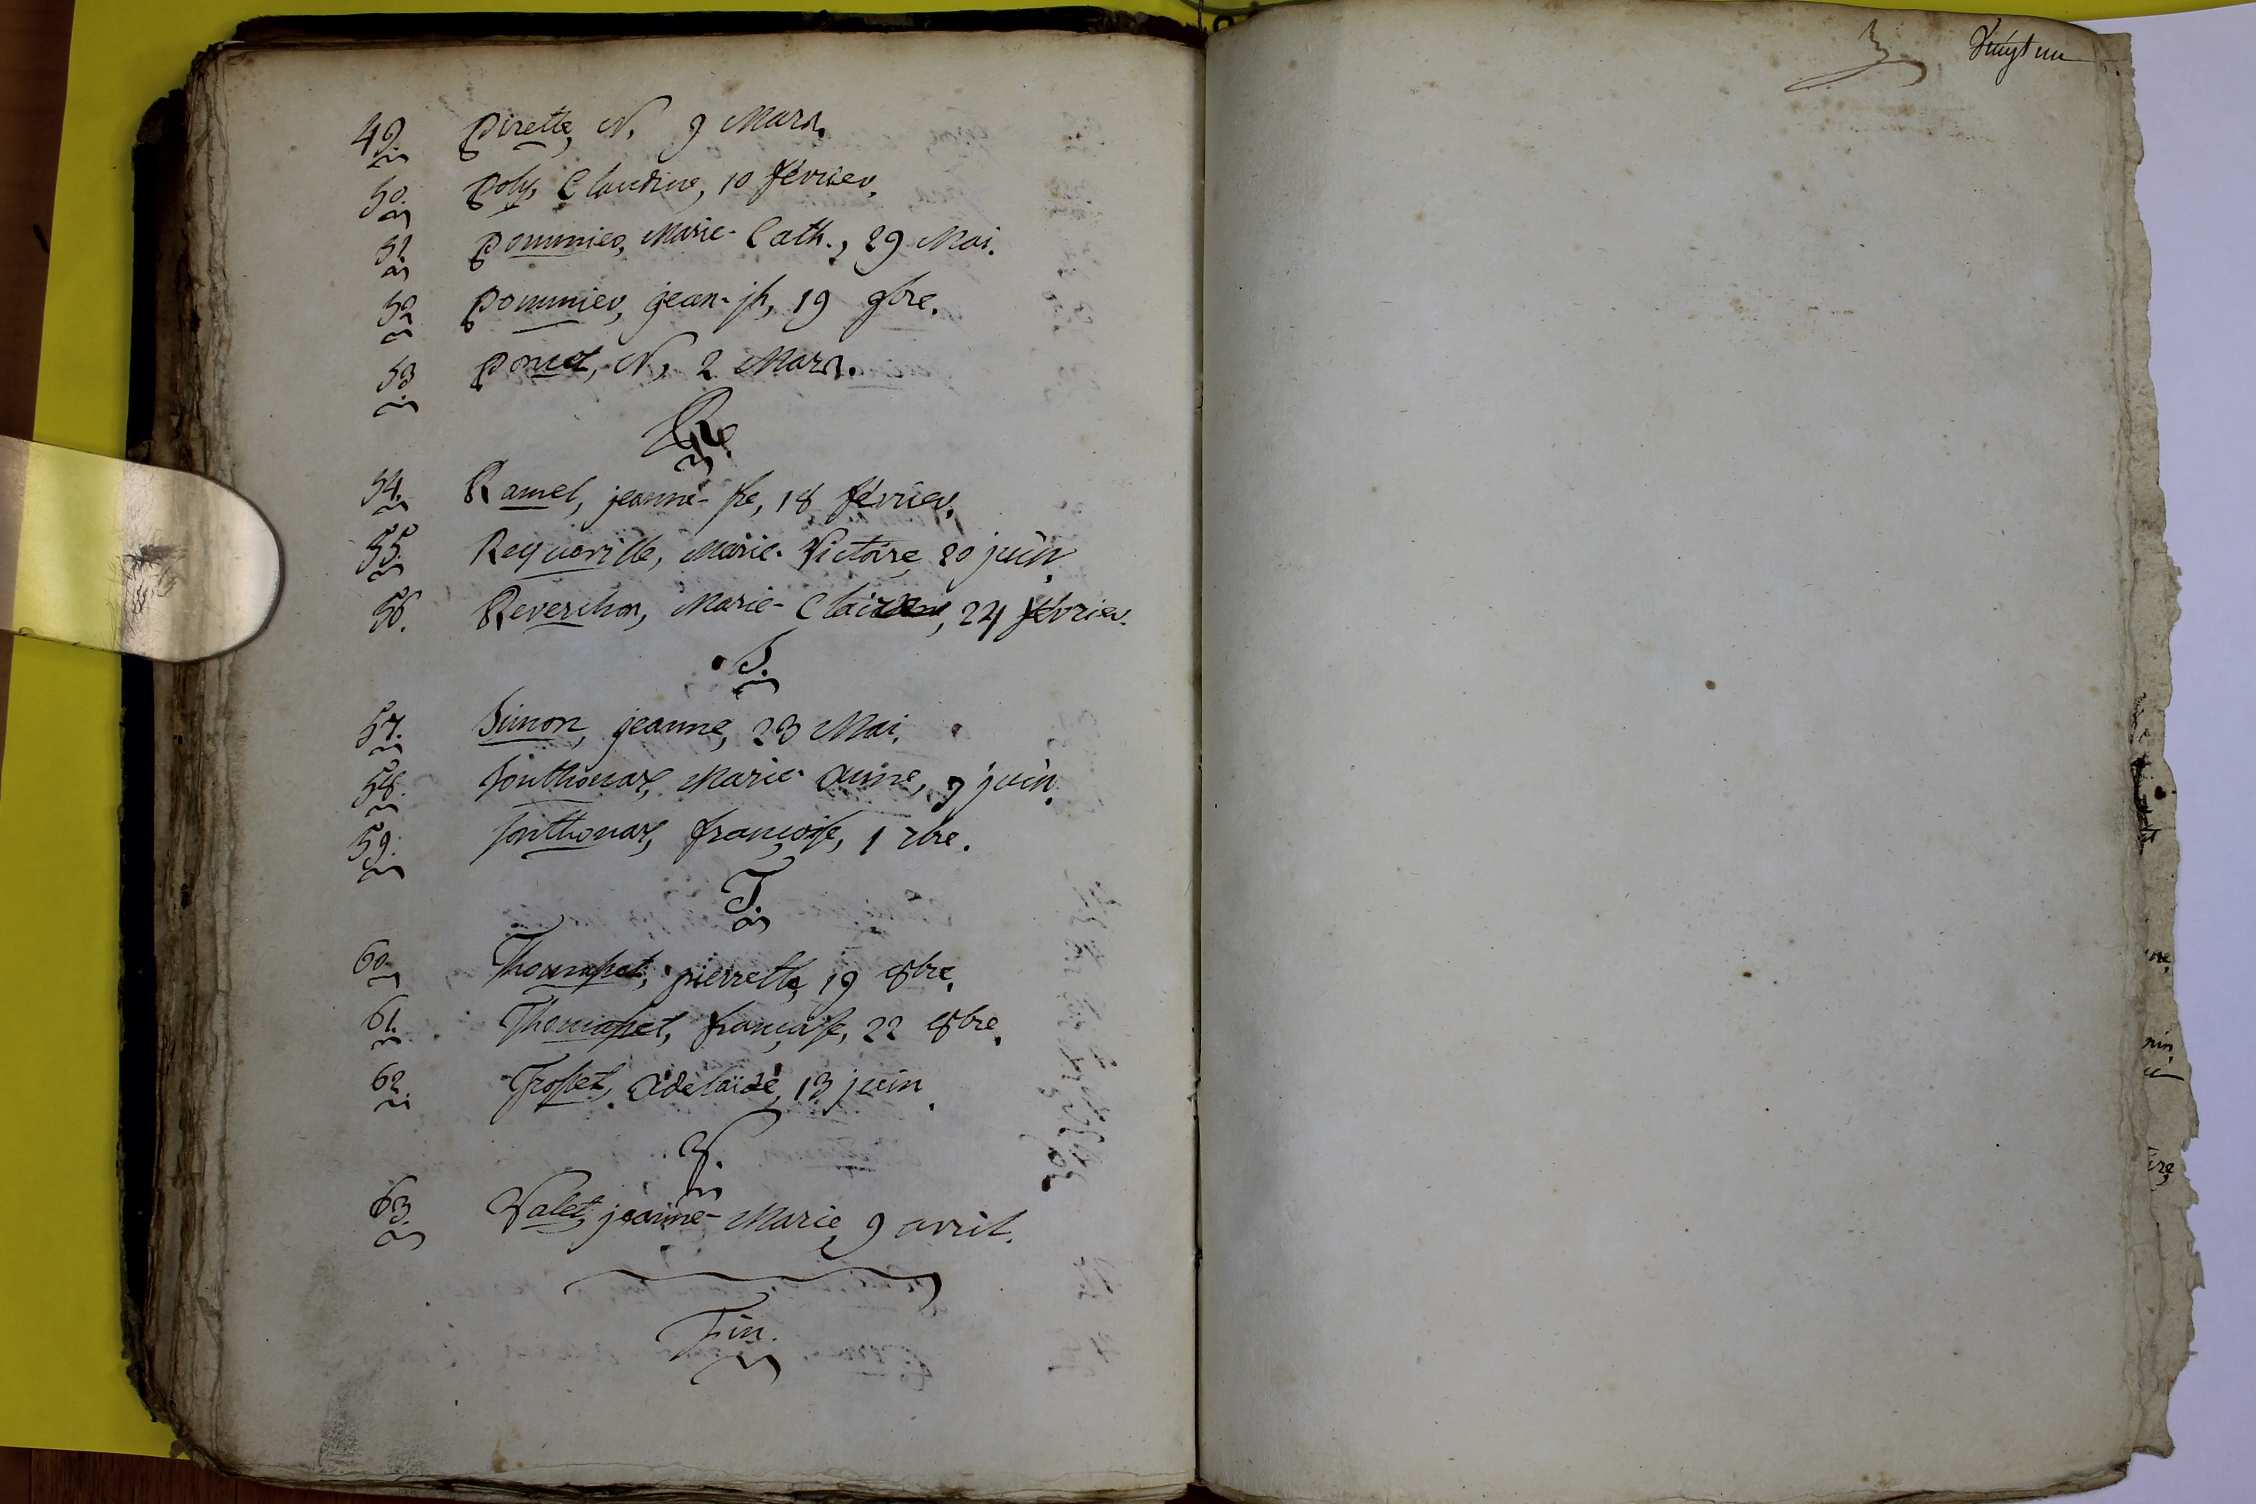 49. Pirette, N. 9 Mars.
50. Poly, Claudine, 10 février.
51. Pommier, Marie-Cath., 29 Mai.
52. Pommier, jean-jh, 19 9bre.
53. Poncet, N, 2 Mars.
R.
54. Ramel, jeanne-fse, 18 février.
55. Requarille, Marie-Victoire 20 juin.
56. Reverchon, Marie-Claire, 24 février.
S.
57. Simon, jeanne, 23 Mai.
58. Sonthonax, Marie-Anne, 9 juin.
59. Sonthonax, françoise, 1 xbre.
T.
60. pierrette, 19 8bre.
61. françoise, 22 8bre.
62. Adelaïde, 13 juin.
V.
63. Valet, jeanne-Marie, 9 avril.
Fin.
Vingt un